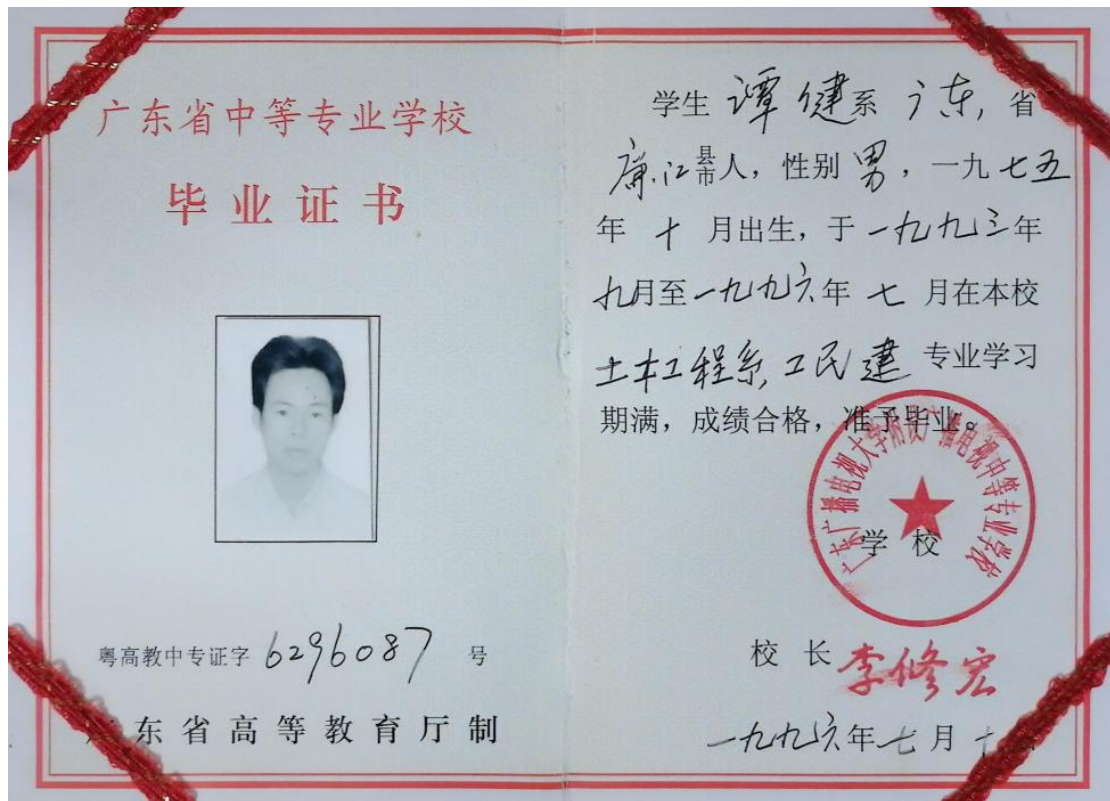 广东省中等专业学校
毕业证书
粤高教中专证字 6296087 号
广东省高等教育厅制
学生 谭健 系 广东 省
廉江 县市人,性别 男,一九七五
年 十 月出生,于一九九三年
九月至一九九六年 七 月在本校
土木工程系工民建 专业学习
期满,成绩合格,准予毕业。
广东广播电视大学附设广播电视中等专业学校
学校
校长 李修宏
一九九六年七月十